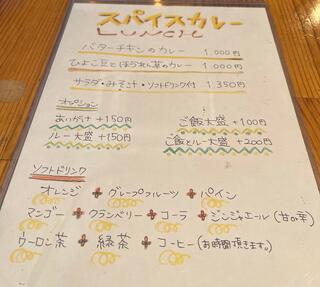 スパイスカレー
LUNCH
バターチキンのカレー 1,000円
ひよこ豆とほうれん草のカレー 1,000円
サラダ・みそ汁・ソフトドリンク付 1,350円
オプション
あいがけ +150円 ご飯大盛 +100円
ルー大盛 +150円 ご飯とルー大盛 +200円
ソフトドリンク
オレンジ グレープフルーツ パイン
マンゴー クランベリー コーラ ジンジャエール (甘or辛)
ウーロン茶 緑茶 コーヒー (お時間頂きます。)